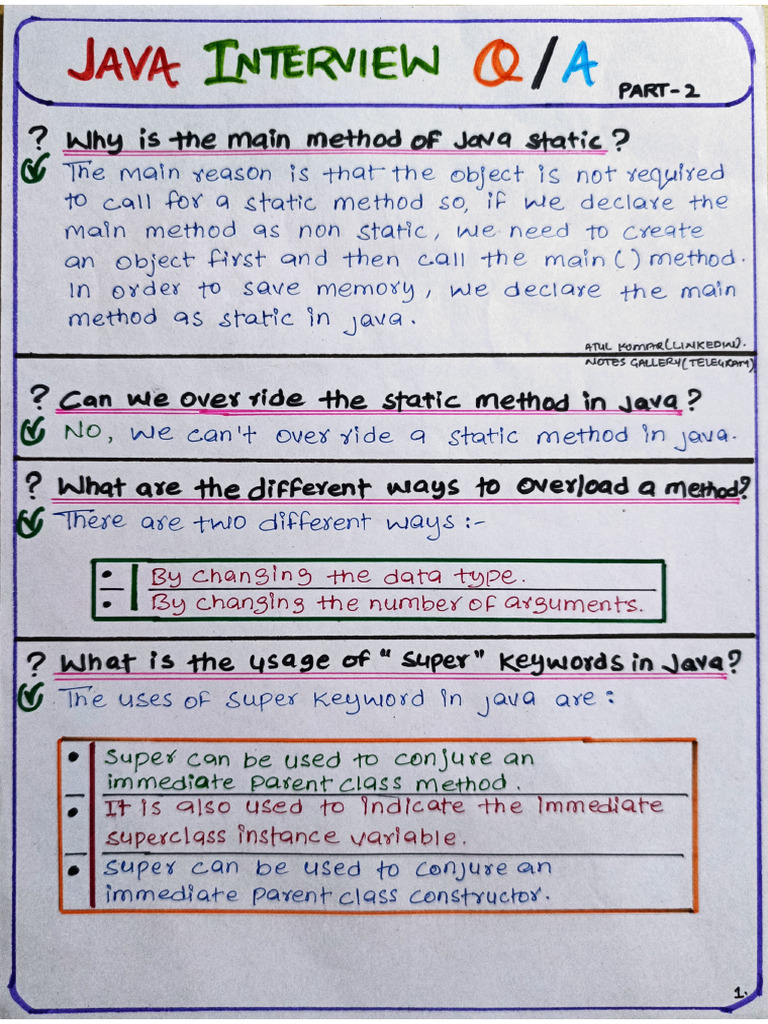 JAVA INTERVIEW Q/A PART-2
? Why is the main method of Java static?
The main reason is that the object is not required
to call for a static method so, if we declare the
main method as non static, we need to create
an object first and then call the main() method.
In order to save memory, we declare the main
method as static in java.
ATUL KUMAR(LINKEDIN).
NOTES GALLERY(TELEGRAM)
? Can we over ride the static method in Java?
No, we can't over ride a static method in java.
? What are the different ways to overload a method?
There are two different ways :-
• By changing the data type.
• By changing the number of arguments.
? What is the usage of "super" keywords in Java?
The uses of super keyword in java are :
• Super can be used to conjure an
immediate parent class method.
• It is also used to indicate the immediate
superclass instance variable.
• Super can be used to conjure an
immediate parent class constructor.
1.